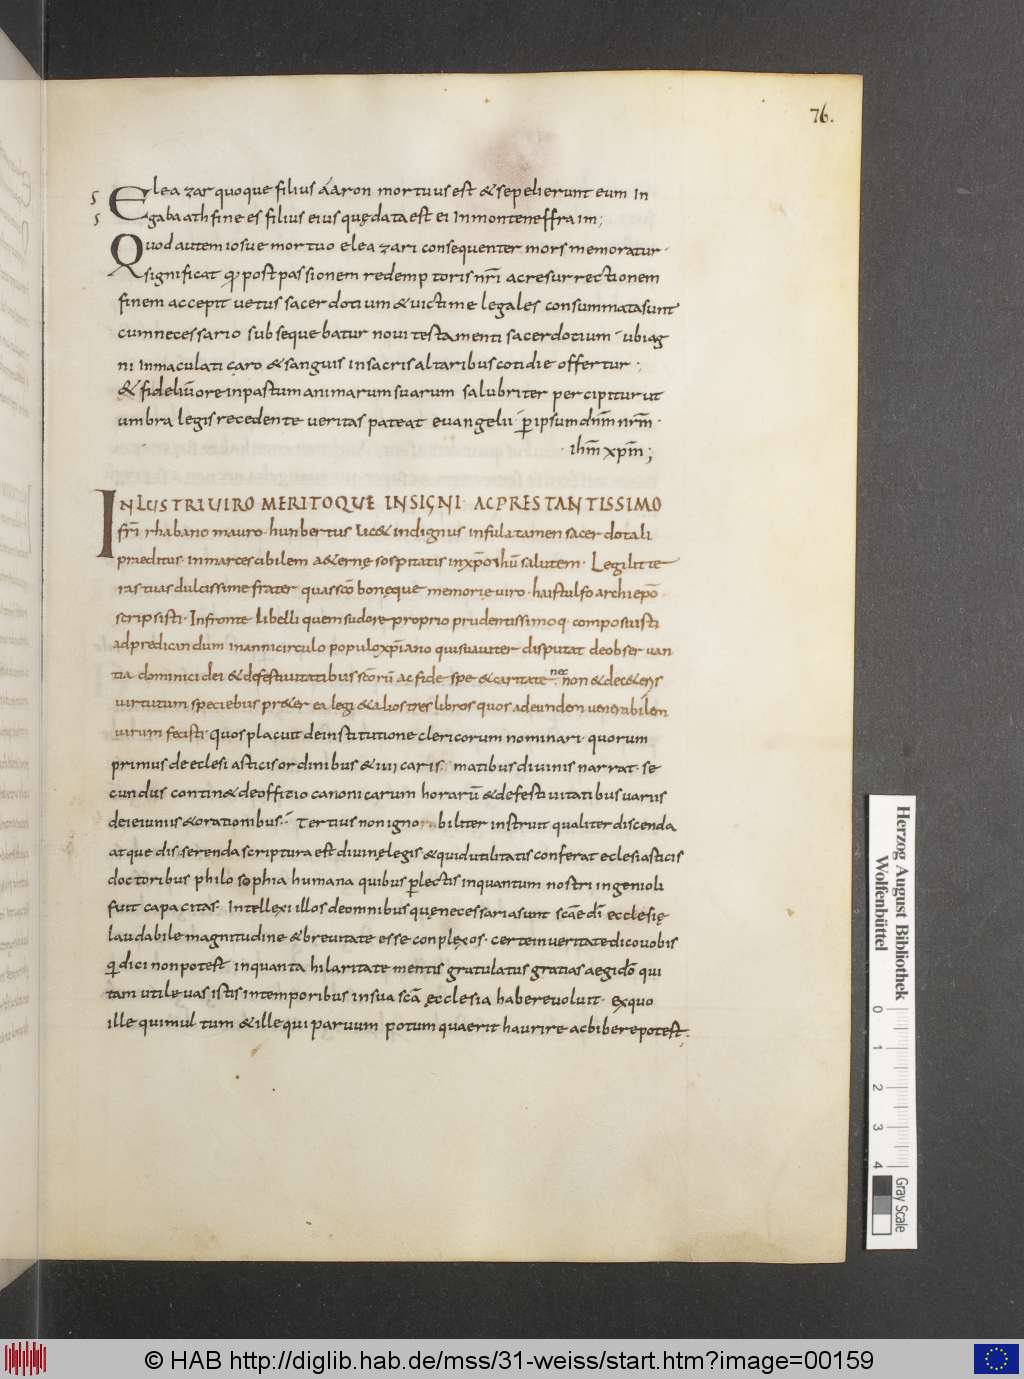 76.
s Eleazar quoque filius aaron mortuus est & sepelierunt eum In
s gabaath finees filius eius quę data est ei In monten effraim;
Quod autem iosue mortuo eleazari consequenter mors memoratur·
significat qđ post passionem redemptoris nr̄i ac resurrectionem
finem accepit uetus sacerdotium & uictime legales consummata sunt
cum necessario subsequebatur noui testamenti sacerdotium· ubi ag
ni Inmaculati caro & sanguis in sacris altaribus cotidie offertur·;
& fideliū ore in pastum animarum suarum salubriter percipitur ut
umbra legis recedente ueritas pateat euangelii· ꝑ ipsum dn̄m nr̄m·
ih̄m xp̄m;
INLUSTRI UIRO MERITOQUE INSIGNI· AC PRESTANTISSIMO
fr̄i rhabano mauro· hunbertus lic& indignus infula tamen sacerdotali
praeditus· inmarcescibilem a&ernę sospitatis in xp̄o ihū salutem· Legi litte
ras tuas dulcissime frater quas sc̄o bonęque memorię uiro· haistulfo archiep̄o
scripsisti· In fronte libelli quem sudore proprio prudentissimo q· composuisti
ad predicandum in anni circulo populo xp̄iano qui suauiter disputat de obseruan
tia dominici dei & de festiuitatibus sc̄orū ac fide spe & caritate· nec non & de c&eris
uirtutum speciebus pr&er ea legi & alios tres libros quos ad eundem uenerabilem
uirum fecisti· quos placuit de institutione clericorum nominari· quorum
primus de eclesiasticis ordinibus & iiii caris matibus diuinis narrat· se
cundus contin& de offitio canonicarum horarū & de festiuitatibus uariis
de ieiuniis & orationibus·: Tertius non igno biliter instruit qualiter discenda
atque disserenda scriptura est diuine legis & quid utilitatis conferat eclesiasticis
doctoribus philosophia humana quibus ꝑlectis inquantum nostri ingenioli
fuit capacitas· Intellexi illos de omnibus quę necessaria sunt sc̄ae dī ecclesię
laudabile magnitudine & breuitate esse conplexos· certe in ueritate dico uobis
qđ dici non potest in quanta hilaritate mentis gratulatus gratias aegi dō qui
tam utile uas istis in temporibus in sua sc̄a ęcclesia habere uoluit· Ex quo
ille qui multum & ille qui paruum potum quaerit haurire ac bibere potest·
Herzog August Bibliothek
Wolfenbüttel
0 1 2 3 4
Gray Scale
© HAB http://diglib.hab.de/mss/31-weiss/start.htm?image=00159